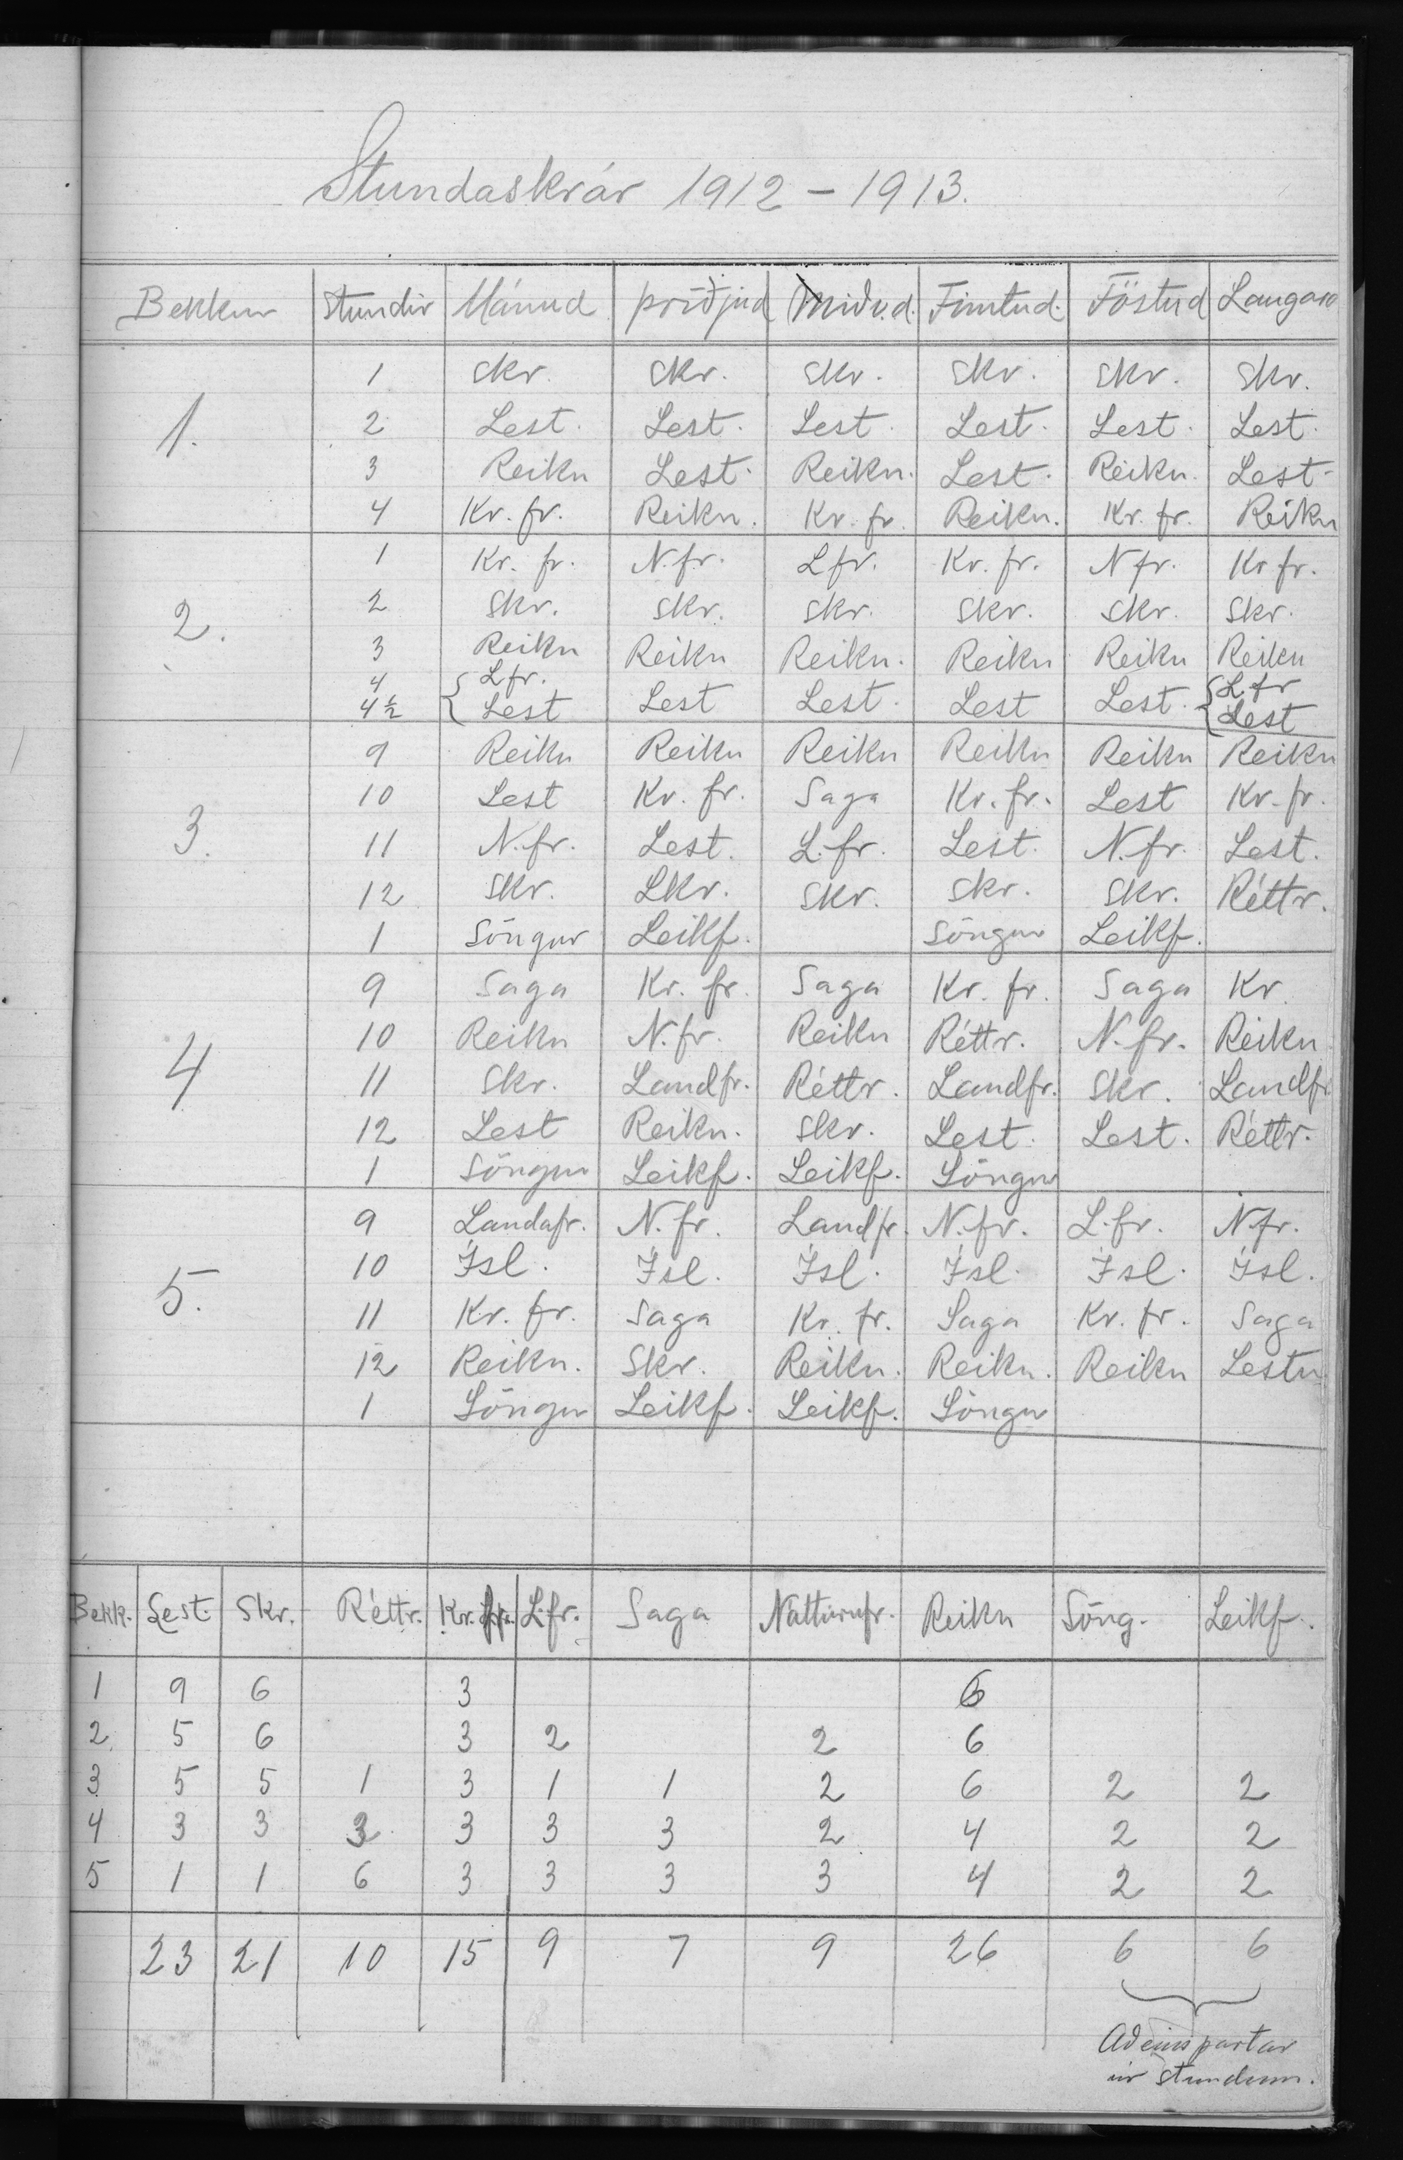 Stundaskrár 1912 – 1913.
Bekkur Stundir Mánud þriðjud Miðv.d. Fimtud. Föstud Laugard
1. 1 Skr. Skr. Skr. Skr. Skr. Skr.
2 Lest. Lest. Lest. Lest. Lest. Lest.
3 Reikn Lest. Reikn. Lest. Reikn. Lest.
4 Kr. fr. Reikn. Kr. fr. Reikn. Kr. fr. Reikn
2. 1 Kr. fr. N. fr. L fr. Kr. fr. N fr. Kr fr.
2 Skr. Skr. Skr. Skr. Skr. Skr.
3 Reikn Reikn Reikn. Reikn Reikn Reikn
4 L fr. L. fr
4½ Lest Lest Lest. Lest Lest. Lest
3. 9 Reikn Reikn Reikn Reikn Reikn Reikn
10 Lest Kr. fr. Saga Kr. fr. Lest Kr. fr.
11 N. fr. Lest. L. fr. Lest. N. fr. Lest.
12 Skr. Skr. Skr. Skr. Skr. Réttr.
1 Söngur Leikf. Söngur Leikf.
4 9 Saga Kr. fr. Saga Kr. fr. Saga Kr.
10 Reikn N. fr. Reikn Réttr. N. fr. Reikn
11 Skr. Landfr. Réttr. Landfr. Skr. Landfr
12 Lest Reikn. Skr. Lest. Lest. Réttr.
1 Söngur Leikf. Leikf. Söngur
5. 9 Landafr. N. fr. Landfr. N. fr. L. fr. N. fr.
10 Ísl. Ísl. Ísl. Ísl. Ísl. Ísl.
11 Kr. fr. Saga Kr. fr. Saga Kr. fr. Saga
12 Reikn. Skr. Reikn. Reikn. Reikn Lestu
1 Söngur Leikf. Leikf. Söngur
Bekk. Lest. Skr. Réttr. Kr. fr. L. fr. Saga Nattúrufr. Reikn Söng. Leikf.
1 9 6 3 6
2 5 6 3 2 2 6
3 5 5 1 3 1 1 2 6 2 2
4 3 3 3 3 3 3 2 4 2 2
5 1 1 6 3 3 3 3 4 2 2
23 21 10 15 9 7 9 26 6 6
Aðeins partar
úr stundum.